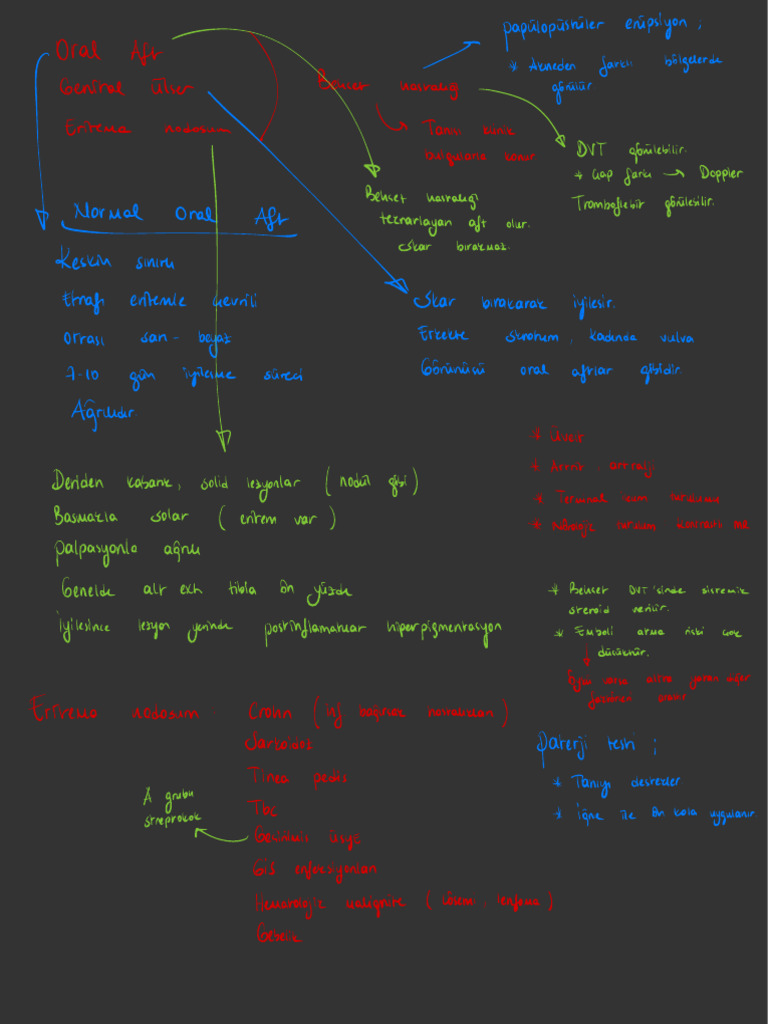 Oral Aft
Genital ülser
Eritema nodosum
Behçet hastalığı
papülopüstüler erüpsiyon ;
* Akneden farklı bölgelerde
görülür
Tanısı klinik
bulgularla konur
DVT görülebilir.
→ Çap farkı → Doppler
Tromboflebit görülebilir.
Behçet hastalığı
tekrarlayan aft olur.
Skar bırakmaz.
Normal Oral Aft
Keskin sınırlı
Etrafı eritemle çevrili
Ortası sarı - beyaz
7-10 gün iyileşme süreci
Ağrılıdır.
Skar bırakarak iyileşir.
Erkekte skrotum, kadında vulva
Görünüşü oral aftlar gibidir.
Deriden kabarık, solid lezyonlar ( nodül gibi )
Basmakla solar ( eritem var )
palpasyonla ağrılı
Genelde alt ext tibia ön yüzde
İyileşince lezyon yerinde postinflamatuar hiperpigmentasyon
* Üveit
* Artrit artralji
* Terminal ileum tutulumu
* Nörolojik tutulum
* Behçet DVT'sinde sistemik
steroid verilir.
* Emboli atma riski çok
düşüktür.
Eritema nodosum
Crohn ( inf bağırsak hastalıkları )
Sarkoidoz
Tinea pedis
Tbc
Geçirilmiş üsye
A grubu
streptokok
GİS enfeksiyonları
Hematolojik malignite ( lösemi, lenfoma )
Gebelik
Paterji testi ;
* Tanıyı destekler
* İğne ile ön kola uygulanır